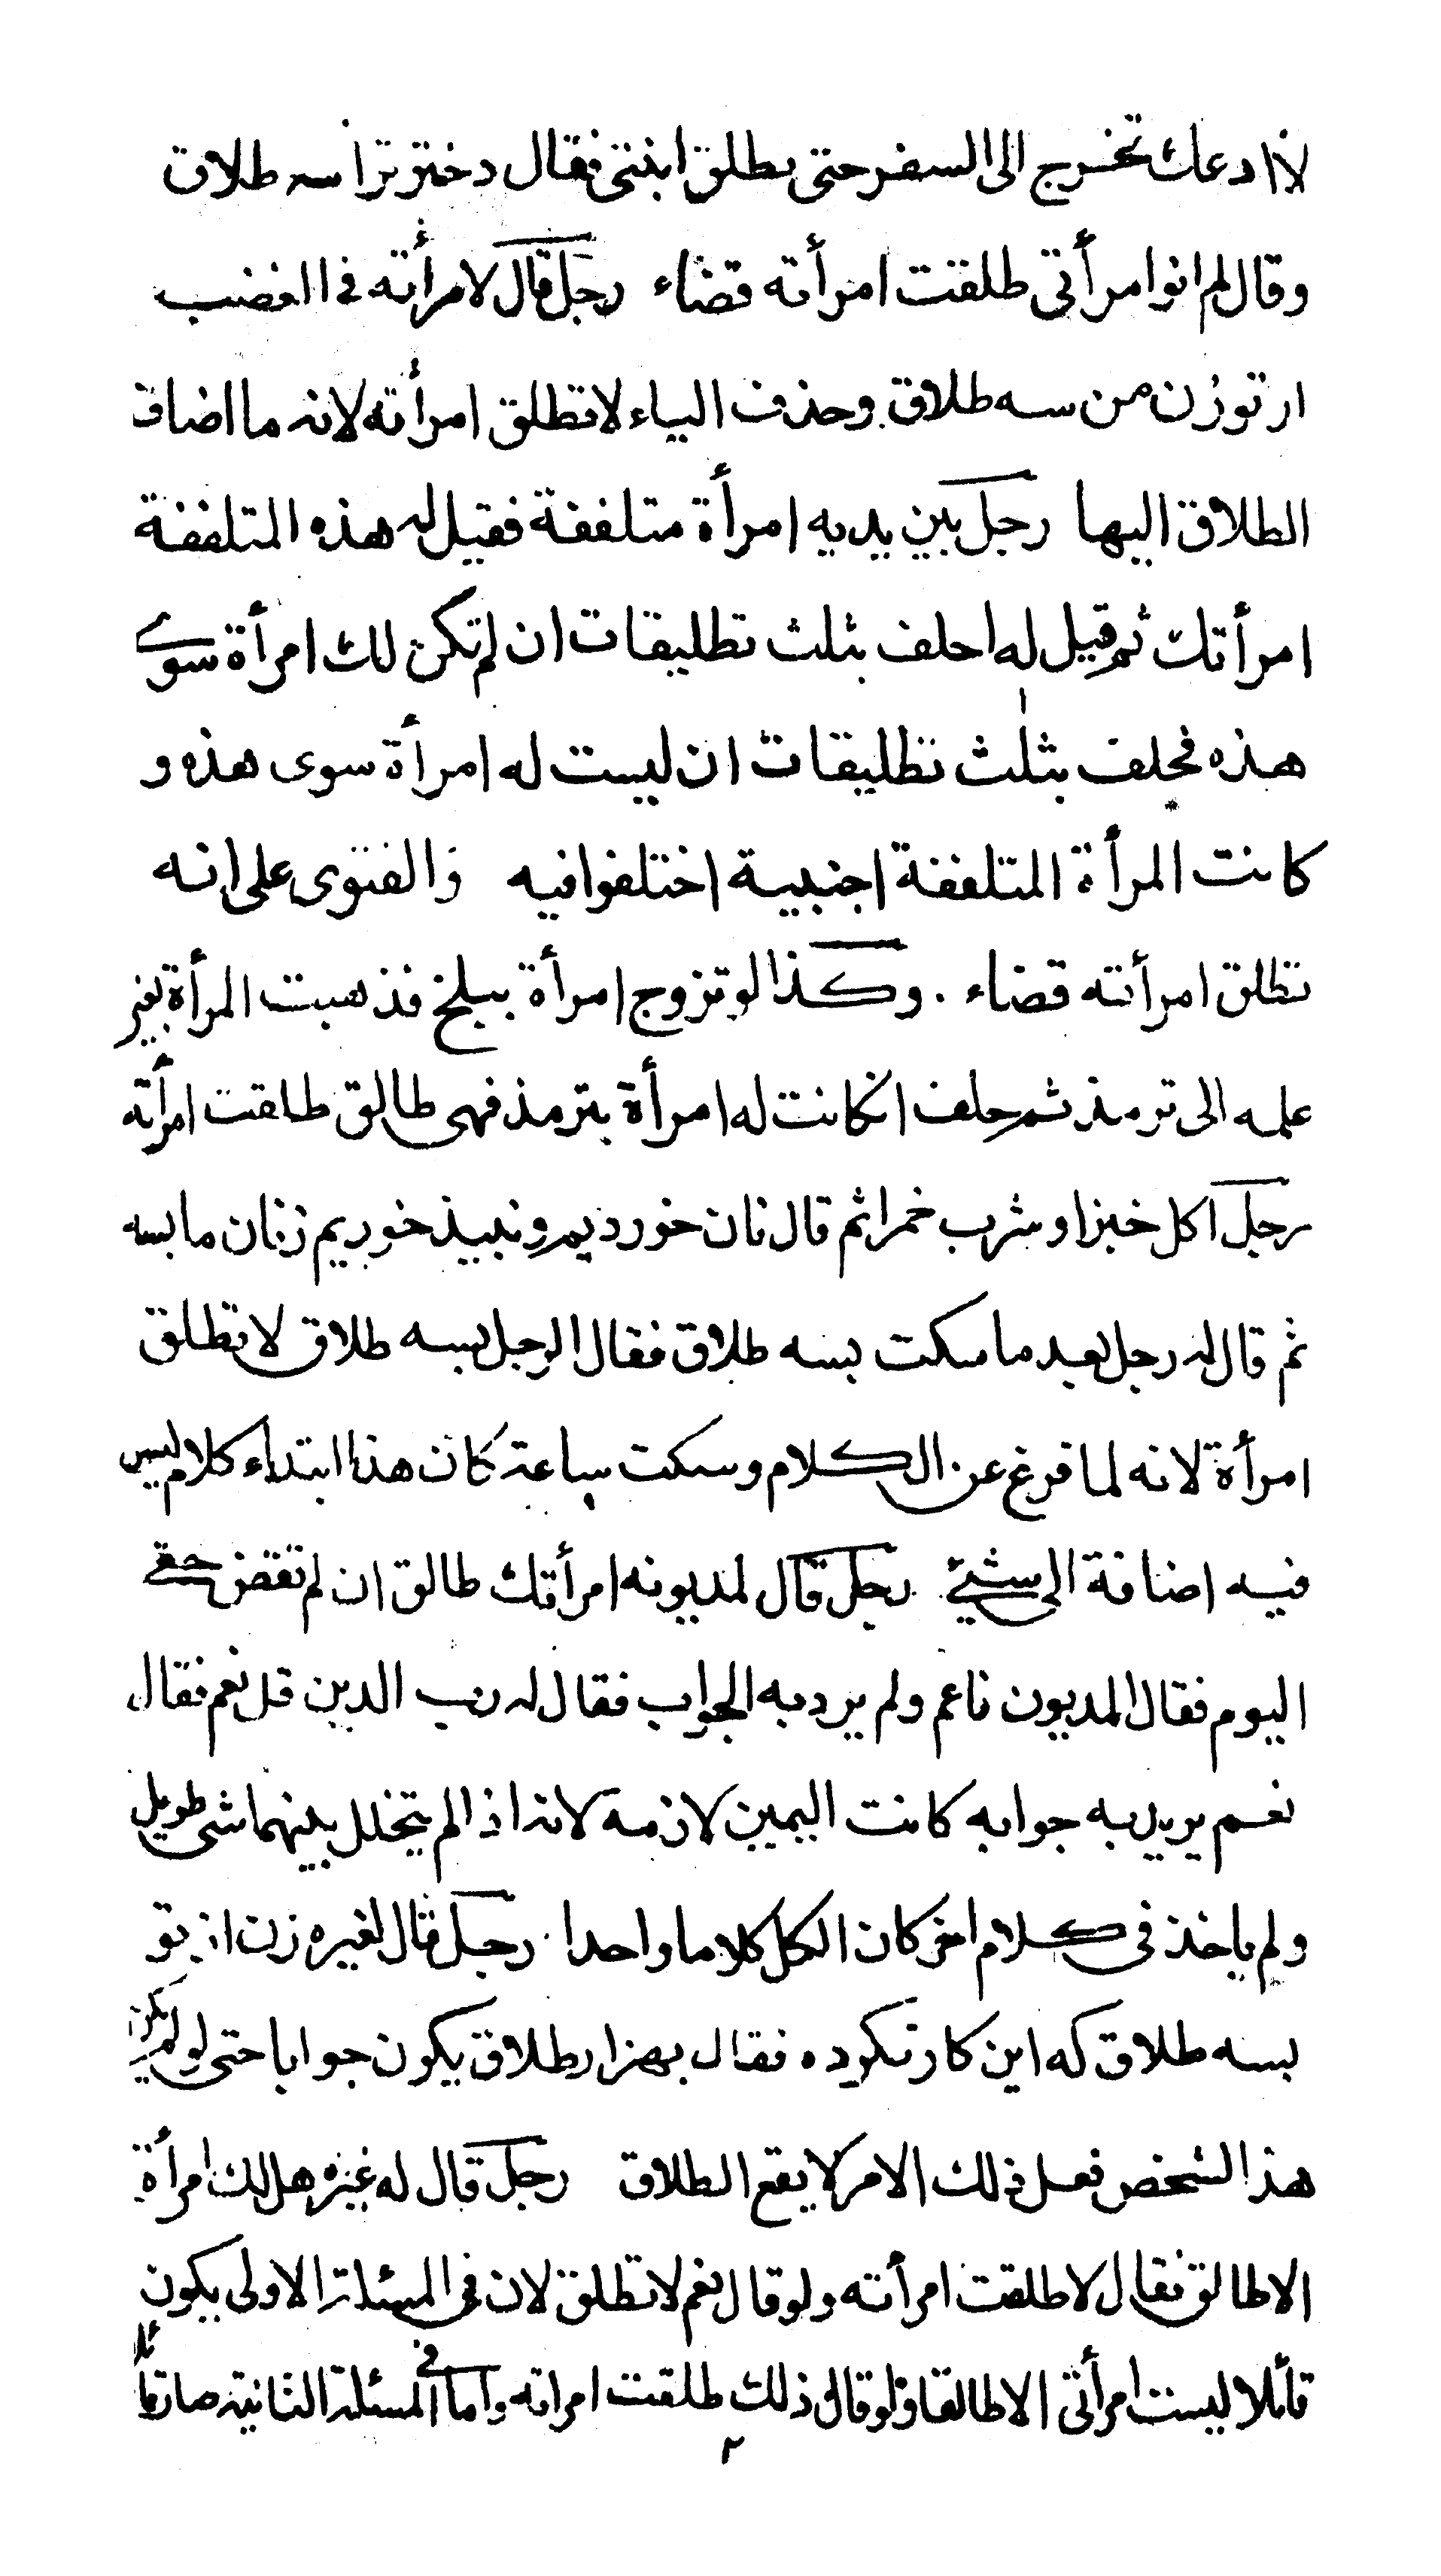 لا ادعك تخرج الى السفر حتى تطلق ابنتى فقال دختر ترا سه طلاق
وقال لم انوا مرأتى طلقت امرأته قضاء رجل قال لامرأته فى الغضب
ار توزن من سه طلاق وحذف الياء لا تطلق امرأته لانه ما اضاف
الطلاق اليها رجل بين يديه امرأة متلففة فقيل له هذه المتلففة
امرأتك ثم قيل له احلف بثلث تطليقات ان لم تكن لك امرأة سوى
هذه فحلف بثلث تطليقات ان ليست له امرأة سوى هذه و
كانت المرأة المتلففة اجنبية اختلفوا فيه والفتوى على انه
تطلق امرأته قضاء . وكذا لو تزوج امرأة ببلخ فذهبت المرأة بغير
علمه الى ترمذ ثم حلف انكانت له امرأة بترمذ فهى طالق طلقت امرأته
رجل اكل خبزا وشرب خمرا ثم قال نان خورديم ونبيذ خوريم زنان ما بسه
ثم قال له رجل بعد ما سكت بسه طلاق فقال الرجل بسه طلاق لا تطلق
امرأة لانه لما فرغ عن الكلام وسكت ساعة كان هذا ابتداء كلام ليس
فيه اضافة الى شئ . رجل قال لمديونه امرأتك طالق ان لم تقض حقى
اليوم فقال المديون ناعم ولم يرد به الجواب فقال له رب الدين قل نعم فقال
نعم يريد به جوابه كانت اليمين لازمة لانه اذا لم يتخلل بينهما شى طويل
ولم ياخذ فى كلام اخر كان الكل كلاما واحدا . رجل قال لغيره زن از تو
بسه طلاق كه اين كار نكرده فقال بهزار طلاق يكون جوابا حتى لو لم يكن
هذا الشخص فعل ذلك الامر لا يقع الطلاق رجل قال له غيره هل لك امرأة
الا طالق فقال لا طلقت امرأته ولو قال نعم لا تطلق لان فى المسئلة الاولى يكون
قائلا ليست امرأتى الا طالقا ولو قال ذلك طلقت امراته واما فى المسئلة الثانية صار قائلا
٢